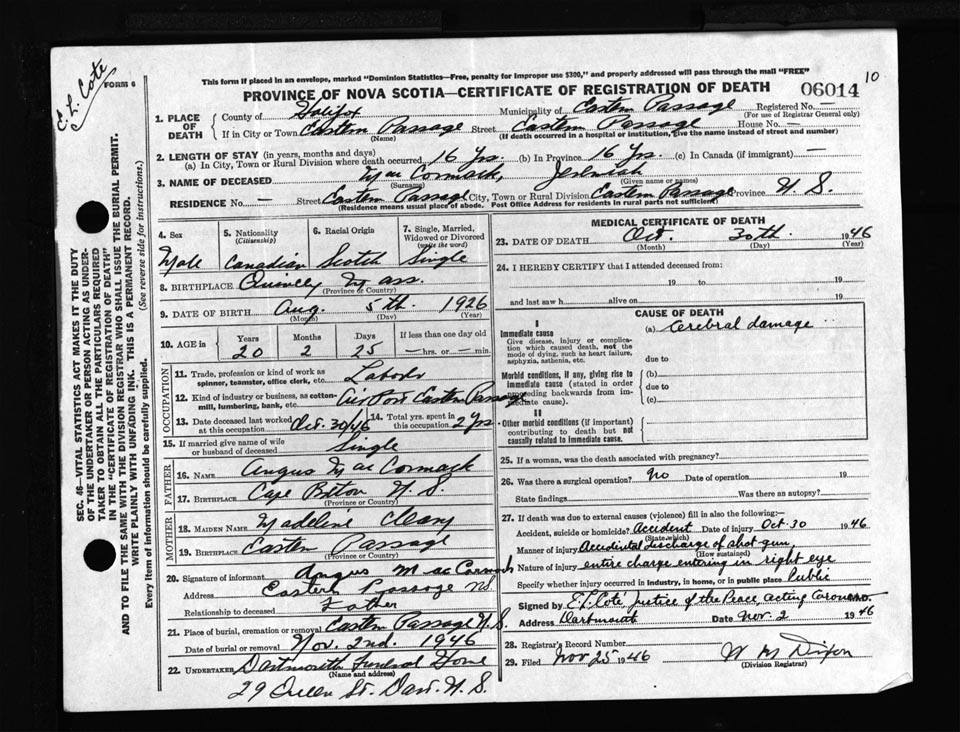 E. L. Cote
FORM 6
10
This form if placed in an envelope, marked "Dominion Statistics—Free, penalty for improper use $300," and properly addressed will pass through the mail "FREE"
PROVINCE OF NOVA SCOTIA—CERTIFICATE OF REGISTRATION OF DEATH 06014
SEC. 46—VITAL STATISTICS ACT MAKES IT THE DUTY
OF THE UNDERTAKER OR PERSON ACTING AS UNDER-
TAKER TO OBTAIN ALL THE PARTICULARS REQUIRED
IN THE "CERTIFICATE OF REGISTRATION OF DEATH"
AND TO FILE THE SAME WITH THE DIVISION REGISTRAR WHO SHALL ISSUE THE BURIAL PERMIT.
WRITE PLAINLY WITH UNFADING INK. THIS IS A PERMANENT RECORD.
Every item of information should be carefully supplied. (See reverse side for instructions.)
1. PLACE OF DEATH County of Halifax Municipality of Eastern Passage Registered No. —
(For use of Registrar General only)
If in City or Town Eastern Passage Street Eastern Passage House No. —
(Name) (If death occurred in a hospital or institution, give the name instead of street and number)
2. LENGTH OF STAY (in years, months and days)
(a) In City, Town or Rural Division where death occurred 16 Yrs. (b) In Province 16 Yrs. (c) In Canada (if immigrant) —
3. NAME OF DECEASED Mac Cormack, Jeremiah
(Surname) (Given name or names)
RESIDENCE No. — Street Eastern Passage City, Town or Rural Division Eastern Passage Province N. S.
(Residence means usual place of abode. Post Office Address for residents in rural parts not sufficient)
4. Sex 5. Nationality (Citizenship) 6. Racial Origin 7. Single, Married, Widowed or Divorced (write the word)
Male Canadian Scotch Single
8. BIRTHPLACE Quincy Mass.
(Province or Country)
9. DATE OF BIRTH Aug. 5th. 1926
(Month) (Day) (Year)
10. AGE in Years Months Days If less than one day old
20 2 25 — hrs. or — min.
OCCUPATION
11. Trade, profession or kind of work as
spinner, teamster, office clerk, etc. Labodr
12. Kind of industry or business, as cotton-
mill, lumbering, bank, etc. Air Port Eastern Passage
13. Date deceased last worked at this occupation Oct. 30/46 14. Total yrs. spent in this occupation 2 Yrs.
15. If married give name of wife
or husband of deceased Single
FATHER
16. NAME Angus Mac Cormack
17. BIRTHPLACE Cape Breton N. S.
(Province or Country)
MOTHER
18. MAIDEN NAME Madeline Cleary
19. BIRTHPLACE Eastern Passage
(Province or Country)
20. Signature of informant Angus Mac Cormack
Address Eastern Passage NS.
Relationship to deceased Father
21. Place of burial, cremation or removal Eastern Passage N.S.
Date of burial or removal Nov. 2nd. 1946
22. UNDERTAKER Dartmouth Funeral Home
(Name and address)
29 Queen St. Dart. N. S.
MEDICAL CERTIFICATE OF DEATH
23. DATE OF DEATH Oct. 30th. 1946
(Month) (Day) (Year)
24. I HEREBY CERTIFY that I attended deceased from
19 to 19
and last saw h alive on 19
CAUSE OF DEATH
I
Immediate cause (a) Cerebral damage
Give disease, injury or complica-
tion which caused death, not the
mode of dying, such as heart failure,
asphyxia, asthenia, etc. due to
Morbid conditions, if any, giving rise to (b)
immediate cause (stated in order due to
proceeding backwards from im-
mediate cause). (c)
II
Other morbid conditions (if important)
contributing to death but not
causally related to immediate cause.
25. If a woman, was the death associated with pregnancy?
26. Was there a surgical operation? No Date of operation 19
State findings Was there an autopsy?
27. If death was due to external causes (violence) fill in also the following:—
Accident, suicide or homicide? Accident Date of injury Oct-30 1946
(State which)
Manner of injury Accidental discharge of shot gun
(How sustained)
Nature of injury entire charge entering in right eye
Specify whether injury occurred in industry, in home, or in public place Public
Signed by E. L. Cote, Justice of the Peace, acting Coroner M.D.
Address Dartmouth Date Nov. 2 1946
28. Registrar's Record Number
29. Filed Nov 25 1946 W M Dixon
(Division Registrar)